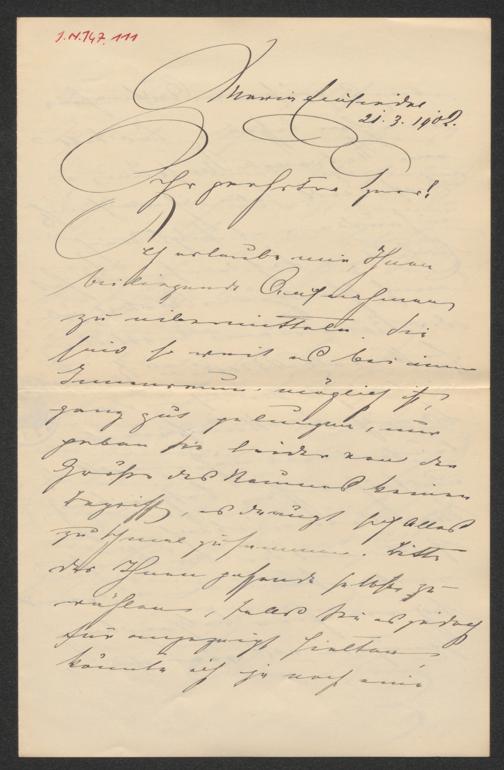 J.N. 147.111
Maria Enzersdorf
21.3.1902.
Sehr geehrter Herr!
Ich erlaube mir, Ihnen
beiliegende Aufnahmen
zu übermitteln. Sie
sind so weit es bei einem
Innenraum möglich ist,
ganz gut gelungen, nur
geben sie leider von der
Größe des Raumes keinen
Begriff, es drängt sich Alles
zu schmal zusammen. Bitte
das Ihnen passende selbst zu
wählen, falls Sie es jedoch
für angezeigt hielten,
könnte ich ja noch eine